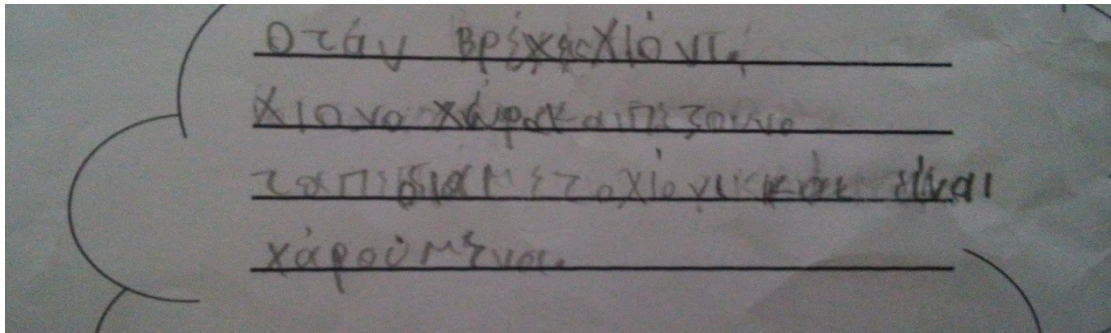 Οτάν Βρέχει Χιόνι,
Χιονο χάρα και πεζουνε
τα πεδια με το χιόνι και είναι
χάρούμενα.